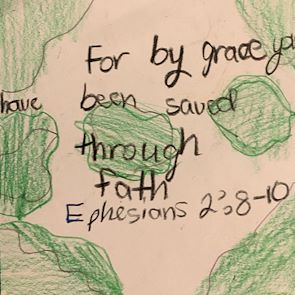 For by grace you
have been saved
through
fath
Ephesians 2:8-10